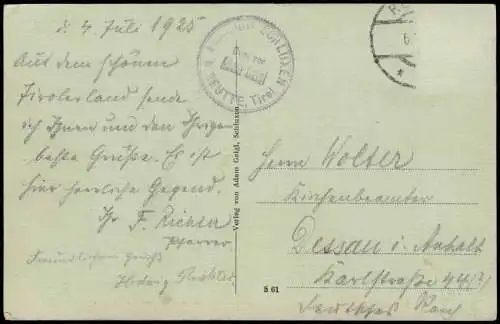 d. 4. Juli 1925
Aus dem schönen
Tirolerland sende
ich Ihnen und den Ihrigen
beste Grüße. Es ist
hier herrliche Gegend.
Ihr F. Richter
Pfarrer.
Freundlichen Gruß
Hedwig Richter
SCHLUXEN
REUTTE Tirol
Verlag von Adam Geigl, Schluxen
S 61
Herrn Wolter
Kirchenbeamter
Dessau i. Anhalt
Karlstraße
Deutsches